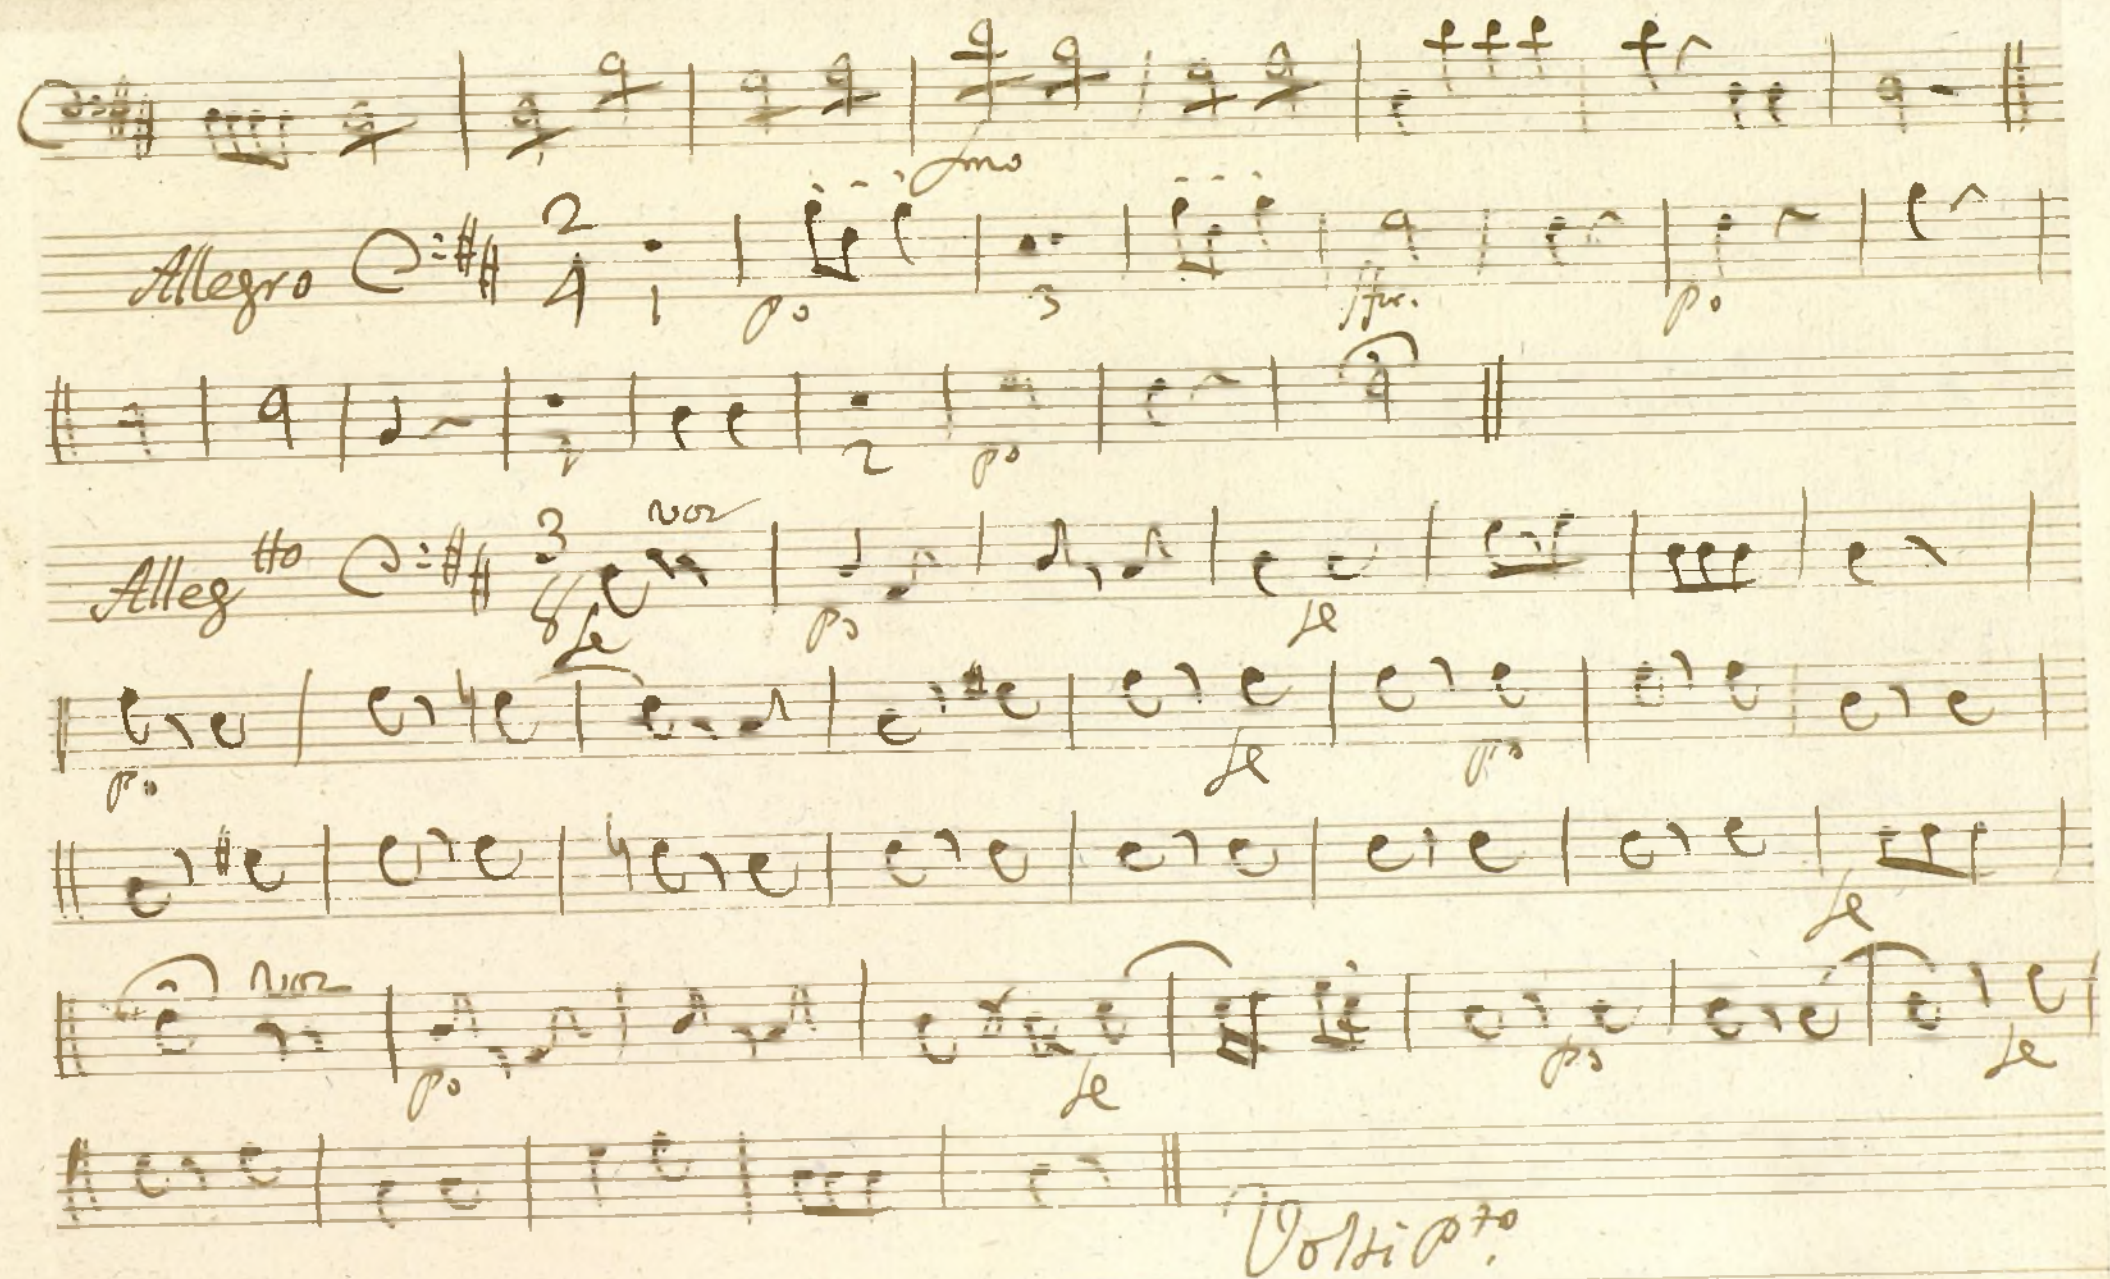 fmo
Allegro 2/4 1 po 3 ffor. po
2 po
Alleg tto 3/8 fe voz po fe
po fe po
fe
voz po fe po fe
Volti P.to